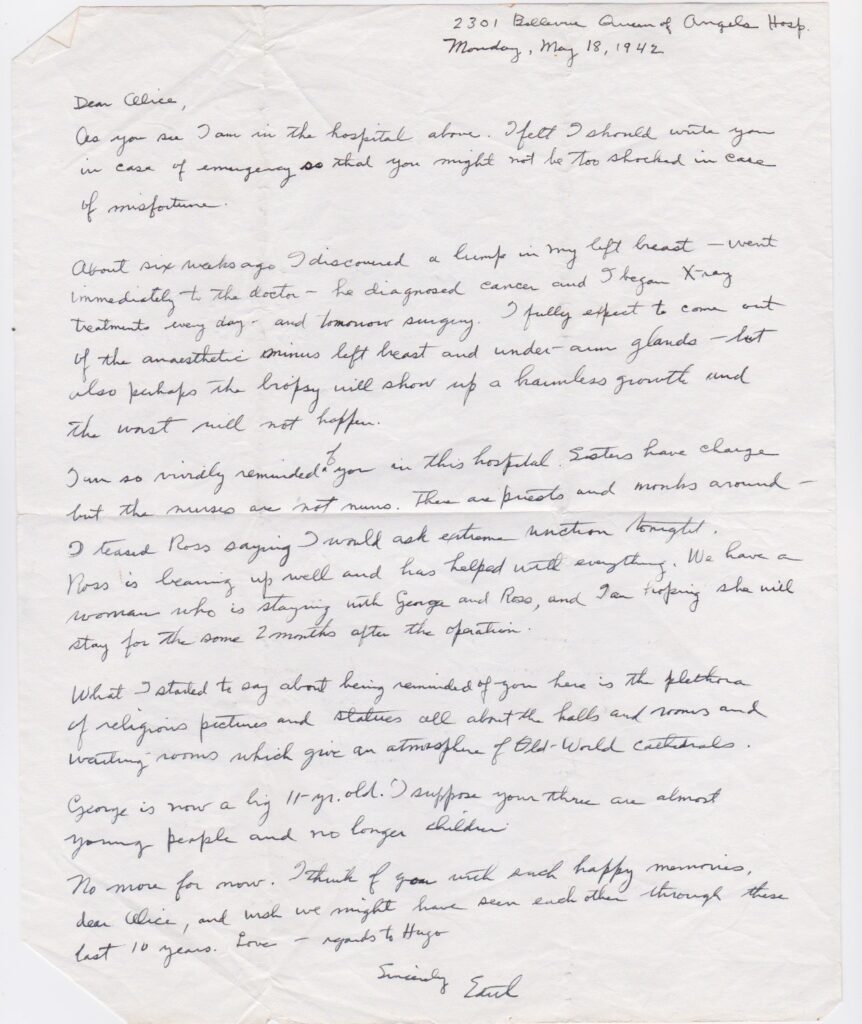 2301 Bellevue Queen of Angels Hosp.
Monday, May 18, 1942
Dear Alice,
As you see I am in the hospital above. I felt I should write you
in case of emergency so that you might not be too shocked in case
of misfortune.
About six weeks ago I discovered a lump in my left breast – went
immediately to the doctor – he diagnosed cancer and I began X-ray
treatments every day – and tomorrow surgery. I fully expect to come out
of the anaesthetic minus left breast and under-arm glands – but
also perhaps the biopsy will show up a harmless growth and
the worst will not happen.
I am so vividly reminded of you in this hospital. Sisters have charge
but the nurses are not nuns. There are priests and monks around –
I teased Ross saying I would ask extreme unction tonight.
Ross is bearing up well and has helped with everything. We have a
woman who is staying with George and Ross, and I am hoping she will
stay for the some 2 months after the operation.
What I started to say about being reminded of you here is the plethora
of religious pictures and statues all about the halls and rooms and
waiting rooms which give an atmosphere of Old-World cathedrals.
George is now a big 11-yr. old. I suppose your three are almost
young people and no longer children
No more for now. I think of you with such happy memories,
dear Alice, and wish we might have seen each other through these
last 10 years. Love – regards to Hugo
Sincerely
Edith